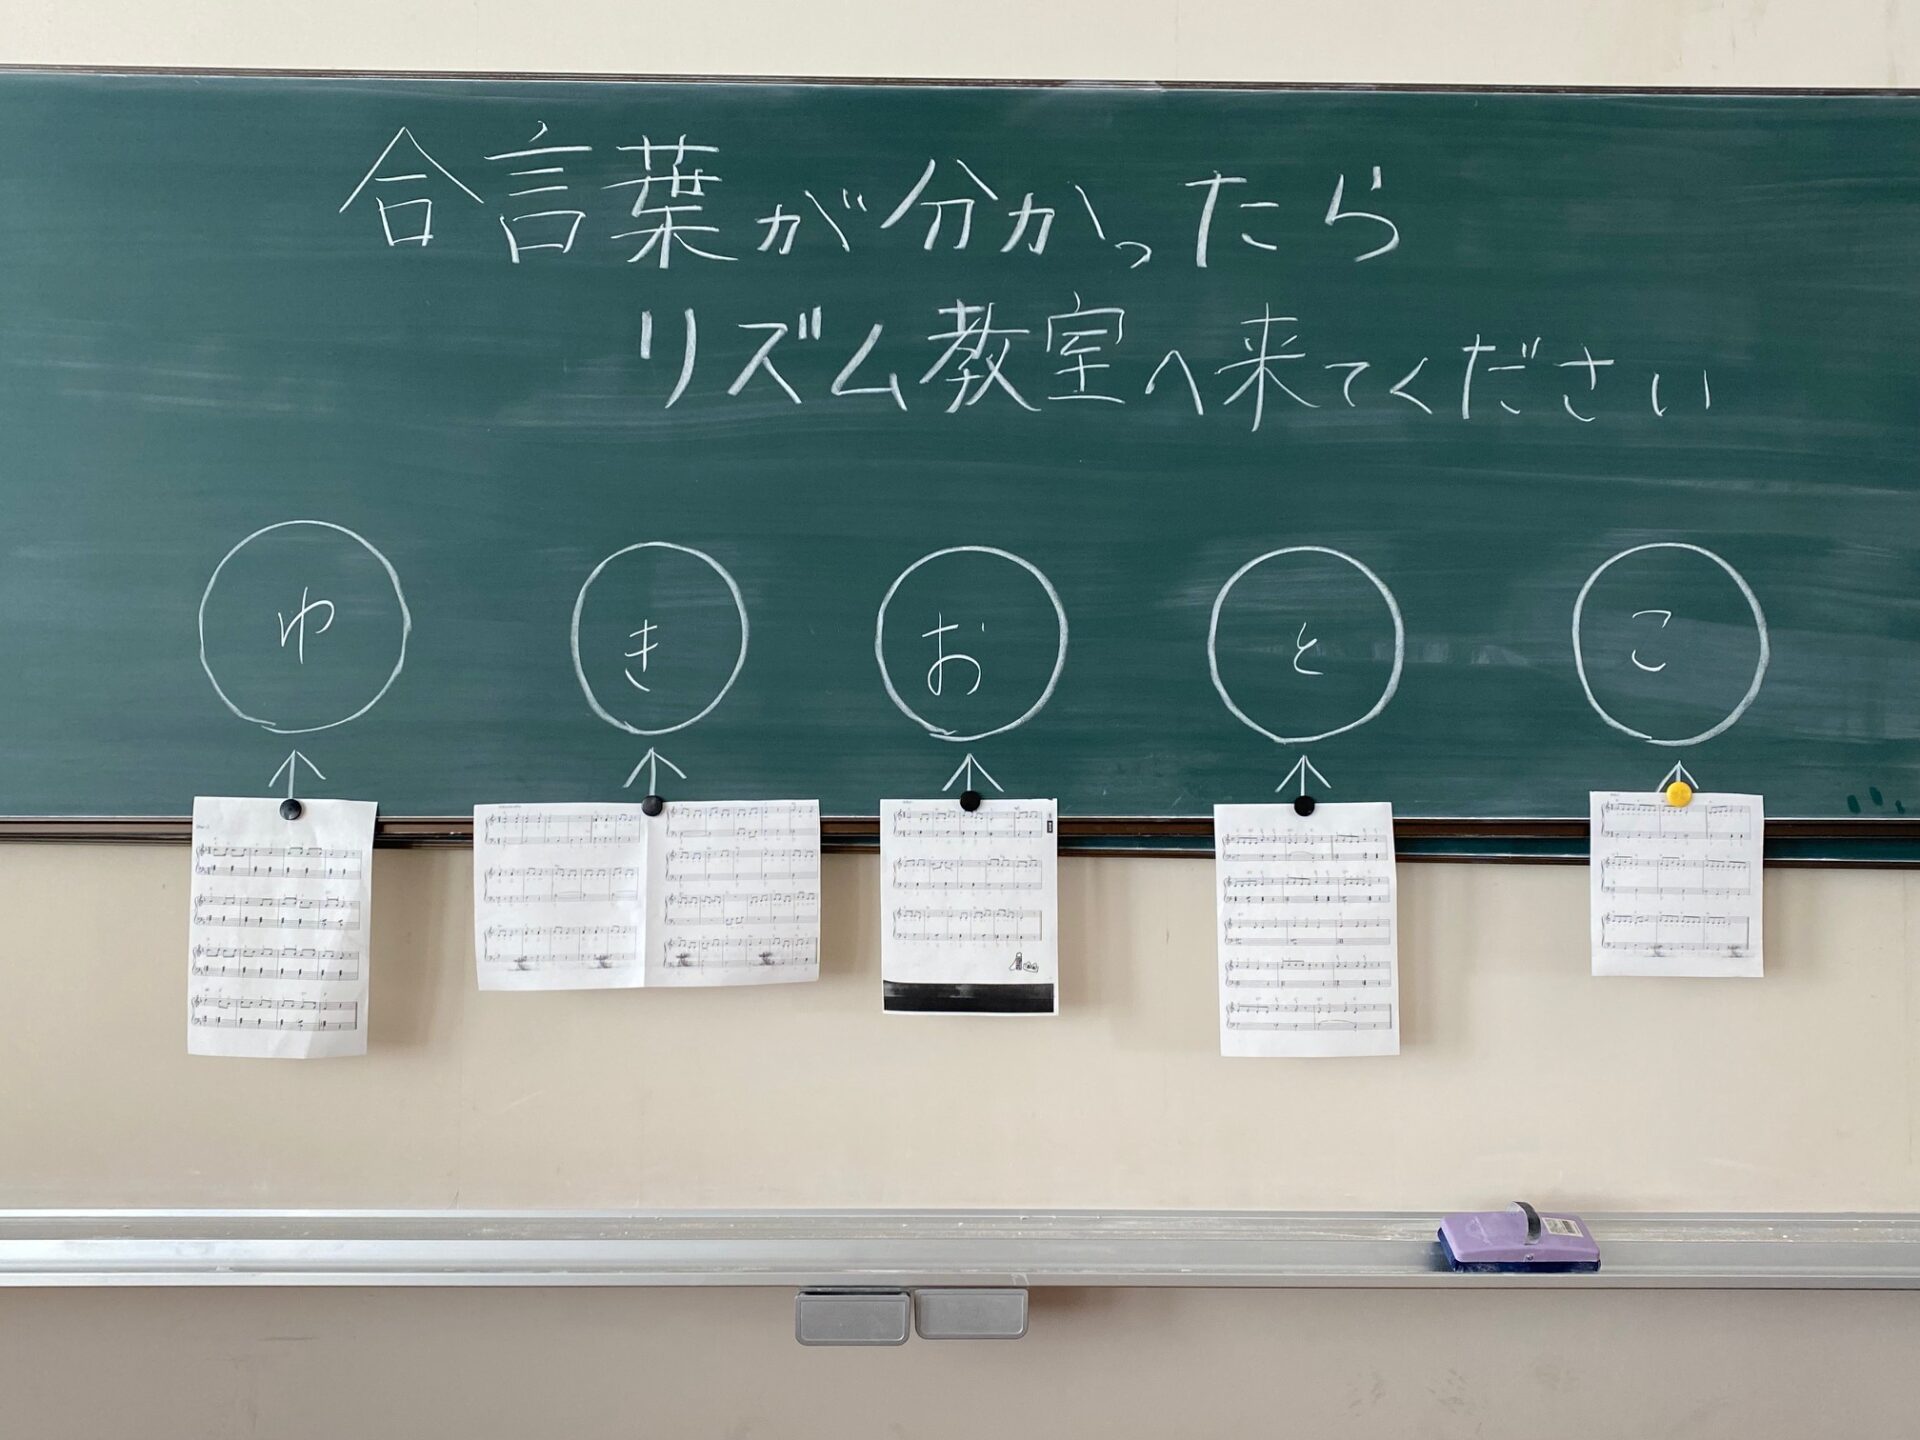 合言葉が分かったら
リズム教室へ来てください
ゆ き お と こ